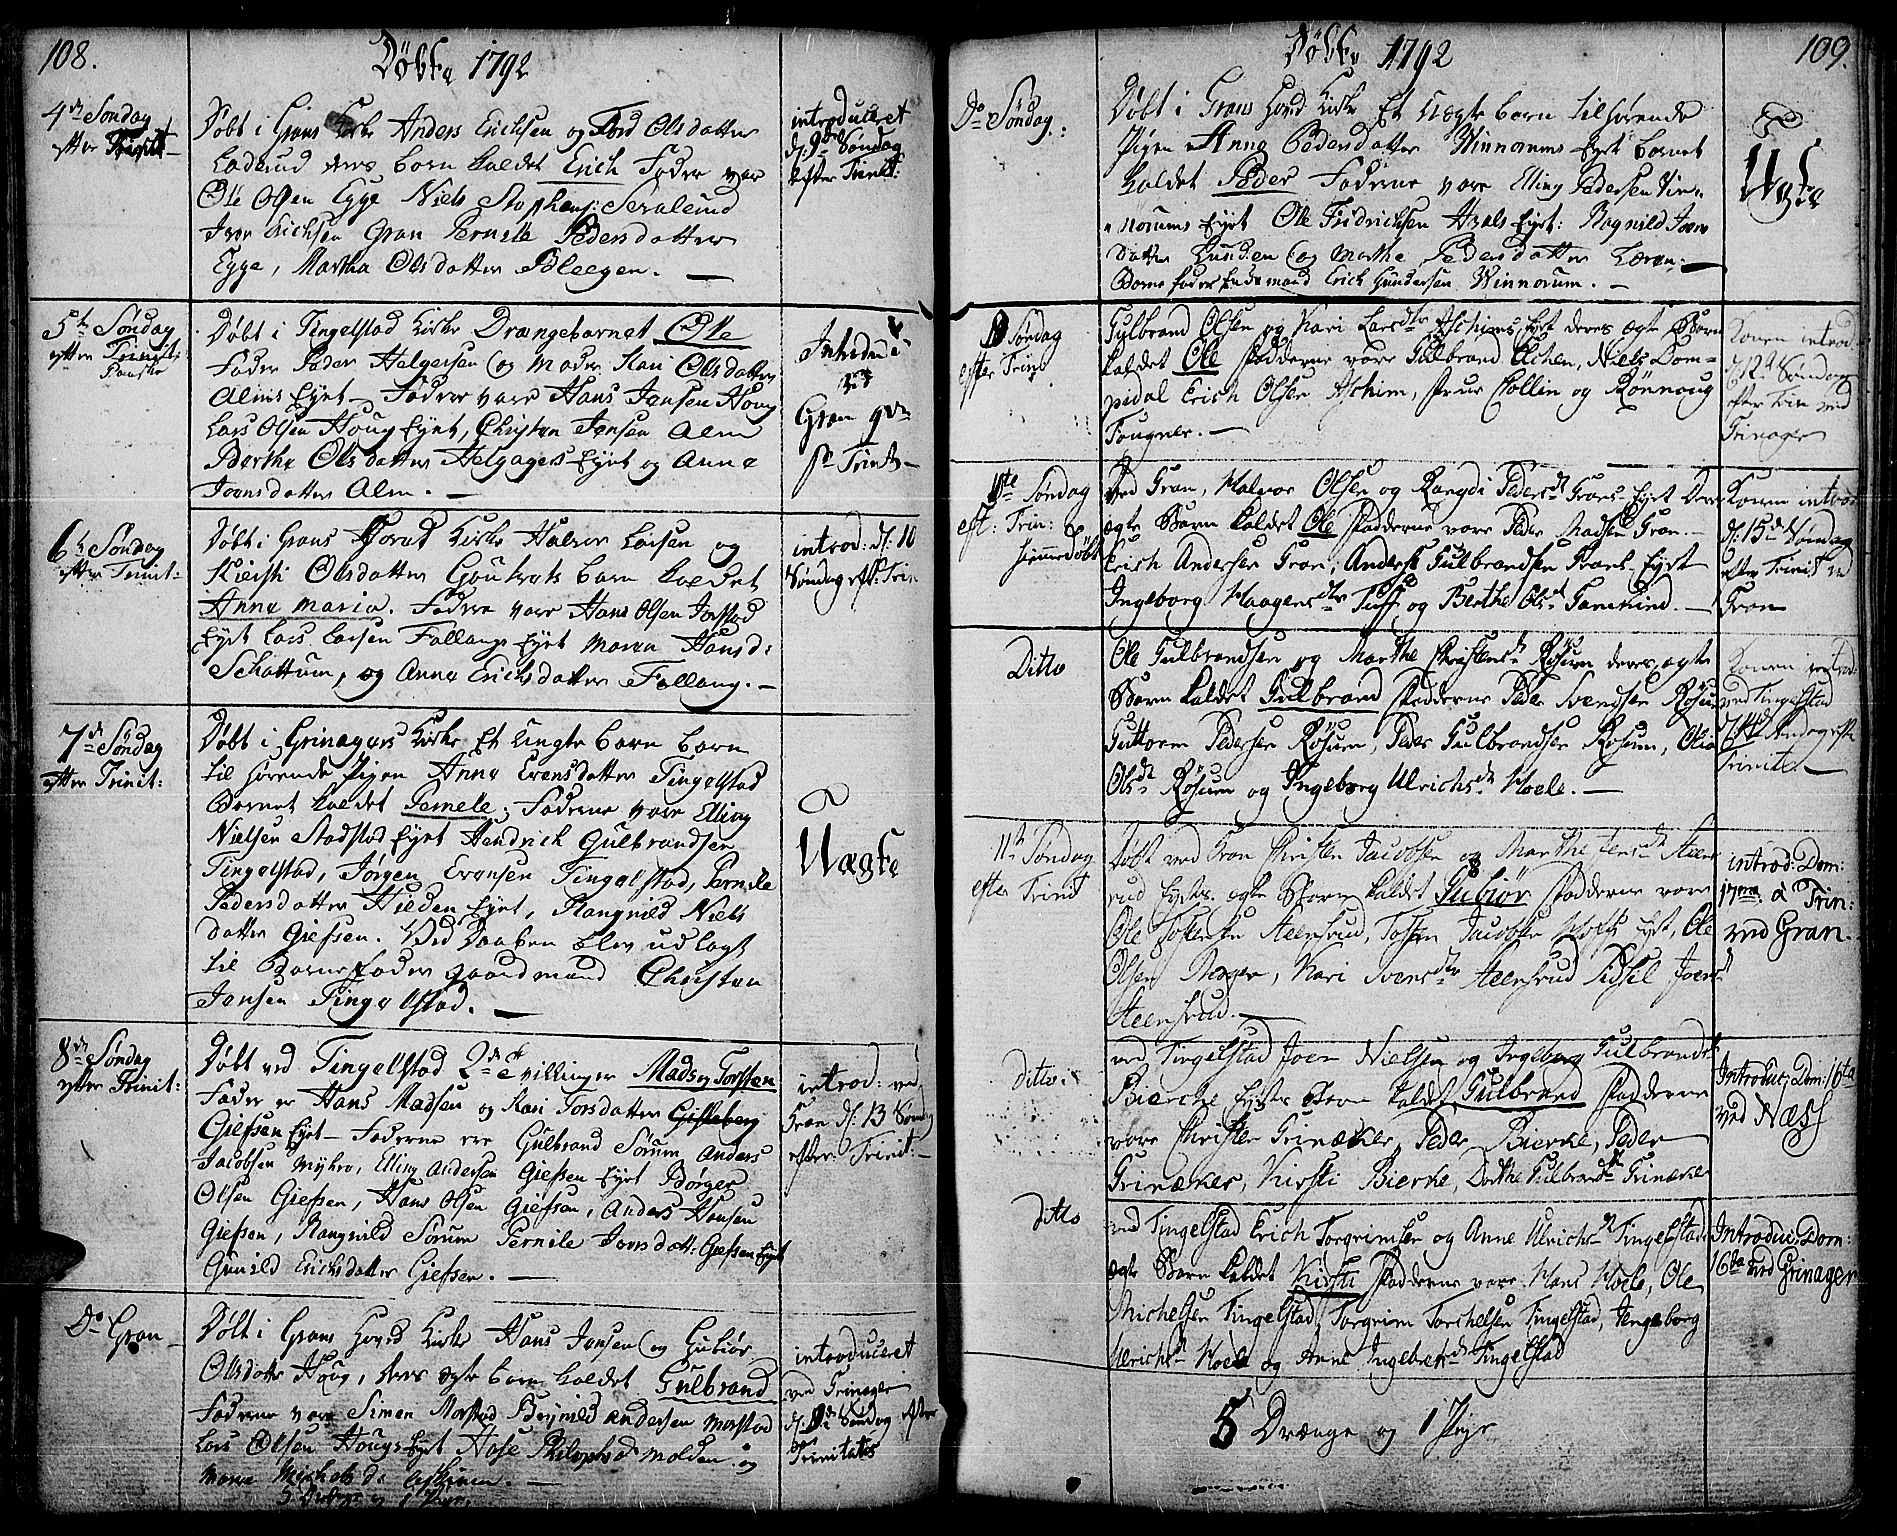 108.
Döbte 1792
4de Søndag
efter Trinit
Døbt i Grans Kirke Anders Erichsen og Olsdatter
deres barn kaldet Erich Fadere var
Ole Olsen Egge Niels
Iver Erichsen Gran Pernele Pedersdatter
Egge, Martha Olsdatter Bleegen.
introduceret
d. 9de Søndag
efter Trinit:
5te Søndag
efter Trinit:
Døbt i Tingelstad Kirke Drængebarnet Ole
Fader Peder Helgersen og Moder Kari Olsdatter
Alms Eyet Fadere vare Hans Jansen Houg
Lars Olsen Houg Eyet, Christen Jensen Alm
Berthe Olsdatter Helgagers Eyet og Anne
Joensdatter Alm.
Gran 9de
p Trinit
6te Søndag
efter Trinit:
Døbt i Grans Hoved Kirke Halvor Larsen og
Kiersti Olsdatter barn kaldet
Anne Maria. Fadere vare Hans Olsen Jorstad
Eyet Lars Larsen Fallang Eyet Maren Hansd:
Schattum, og Anne Erichsdatter Fallang.
introd: d: 10
Søndag eft: Trin
7de Søndag
efter Trinit:
Døbt i Grinagers Kirke Et Uægte barn barn
til hørende Pigen Anne Evensdatter Tingelstad
Barnet kaldet Pernele; Faderne vare Elling
Nielsen Stadstad Eyet Hendrich Gulbrandsen
Tingelstad, Jørgen Evensen Tingelstad, Pernile
Pedersdatter Hilden Eyet, Rangnild Niels
datter Giefsen. Ved Daaben blev udlagt
til Barnefader gaardmand Christen
Jansen Tingelstad.
Uægte
8de Søndag
efter Trinit:
Døbt ved Tingelstad 2de Tvillinger Mads og Torsten
Fader er Hans Madsen og Kari Torsdatter Gisleberg
Giefsen Eyet Faderne ere Gulbrand Sørum Anders
Jacobsen Myhre, Elling Andersen Giefsen Eyet Børger
Olsen Giefsen, Hans Olsen Giefsen, Anders Hansen
Giefsen, Rangnild Sørum Pernile Joensdatt: Giefsen Eyet
Gunild Erichsdatter Giefsen.
introd: ved
Gran d: 13 Søndag
efter Trinit:
Do Gran
Døbt i Grans Hoved Kirke Hans Jansen og Gubiør
Olsdatter Houg, deres egte barn kaldet Gulbrand
Faderne vare Simen Morstad Andersen Morstad
Lars Olsen Hougs Eyet Molden og
Maren Michelsd:
introduceret
ved Grinager
Søndag efter
Trinitatis
109.
Döbte 1792
Do Søndag:
Døbt i Grans Hoved Kirke Et Uægte barn tilhørende
Pigen Anne Pedersdatter Winnorums Eyet barnet
kaldet Peder Faderne vare Elling Pedersen Vin-
norums Eyet Ole Fredrichsen Eyet: Ragnild Joens
datter Lunden og Marthe Pedersdatter
Barne fader Erich Gundersen Winnorum.
Uægte
Søndag
efter Trin:
Gulbrand Olsen og Kari Larsdtr Aschims Eyet deres egte Barn
kaldet Ole Fadderne vare Gulbrand Niels Dom-
pedal Erich Olsen Aschim, Collin og Rønnoug
Fougner.
Konen introd
d. 12te Søndag
efter Trin ved
Grinager
10te Søndag
eft: Trin:
hjemmedøbt
Ved Gran, Halvor Olsen og Rangdi Pedersd: Grans Eyet Deres
egte Barn kaldet Ole Fadderne vare Peder Madsen Gran.
Erich Andersen Gran, Anders Gulbrandsen Grans Eyet
Ingeborg Haagensdtr Tuff og Berthe Olsd: Gamkind.
Konen introd
d: 15de Søndag
efter Trinit ved
Gran
Ditto
Ole Gulbrandsen og Marthe Christensd: Røsum deres egte
Barn kaldet Gulbrand Fadderne Peder Svendsen Røsum
Guttorm Pedersen Røsum, Peder Gulbrandsen Røsum, Olia
Olsd: Røsum og Ingeborg Ulrichsd: Hoele.
Konen introd:
ved Tingelstad
d. 14de Søndag eft
Trinit.
11te Søndag
efter Trinit
Døbt ved Gran Christen Jacobsen og Marthe Jensd: Steens
rud Eyets egte Barn kaldet Gubiør Fadderne vare
Ole Steensrud, Tosten Jacobsen Eyet, Ole
Olsen Berger, Kari Svensdtr Steensrud Sidsel Joens
Steensrud.
introd: Dom:
17ma à Trin:
ved Gran.
ditto
ved Tingelstad Joen Nielsen og Ingeborg Gulbrandsd:
Bierche Eyets Barn kaldet Gulbrand Fadderne
vare Christen Grinaker, Peder Bierke, Peder
Grinaker, Kirsti Bierke, Dorthe Gulbrandsd: Grinaker
Introduc: Dom: 16ta
ved Næss
ditto
ved Tingelstad Erich Torgrimsen og Anne Ulrichsd: Tingelstad
egte Barn kaldet Kirsti Fadderne vare Hans Hoele, Ole
Michelsen Tingelstad, Torgrim Torchelsen Tingelstad, Ingeborg
Ulrichsd: Hoele og Anne Ingebretsd: Tingelstad
Introduc: Dom:
16ta ved Grinager
5 Drænge og 1 Pige